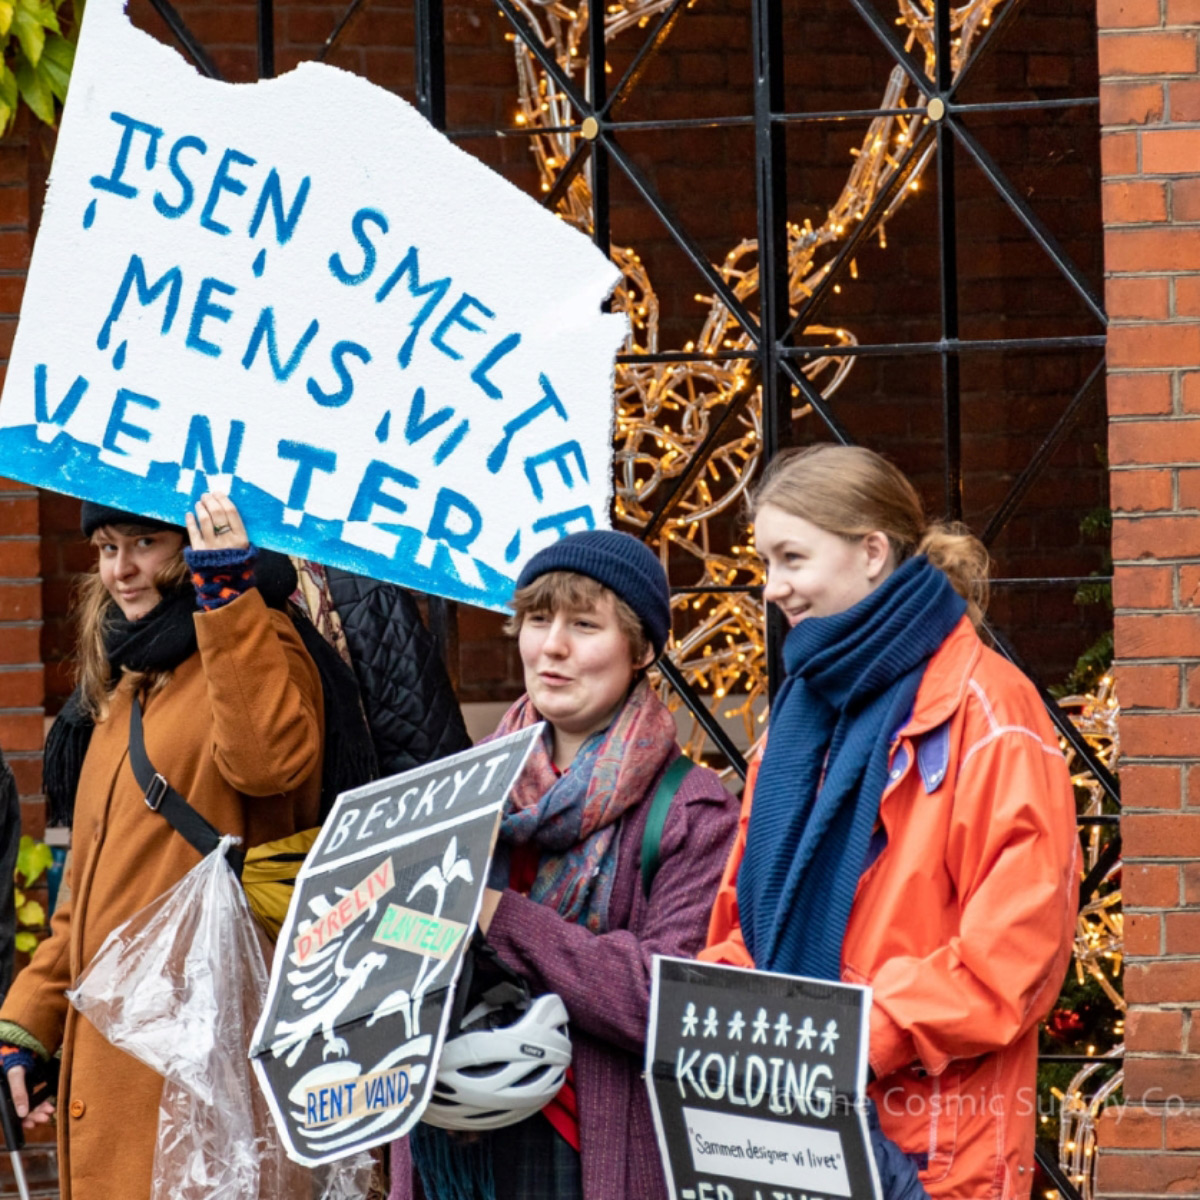 ISEN SMELTER
MENS VI
VENTER
BESKYT
DYRELIV
PLANTELIV
RENT VAND
KOLDING
"Sammen designer vi livet"
The Cosmic Supply Co.